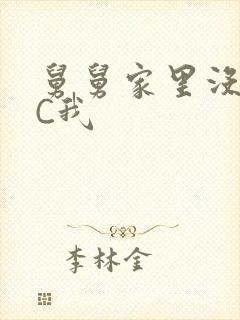 舅舅家里没
C我
李林金